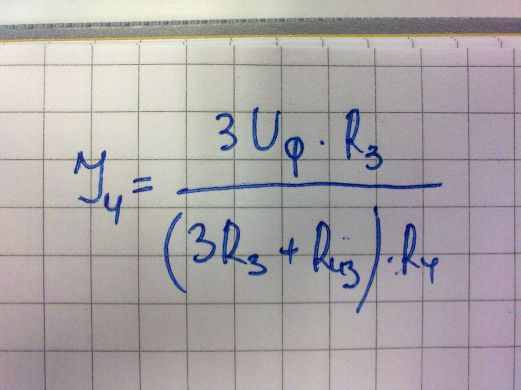 I₄ = 3 U_φ · R₃ / (3R₃ + R₄₃) · R₄